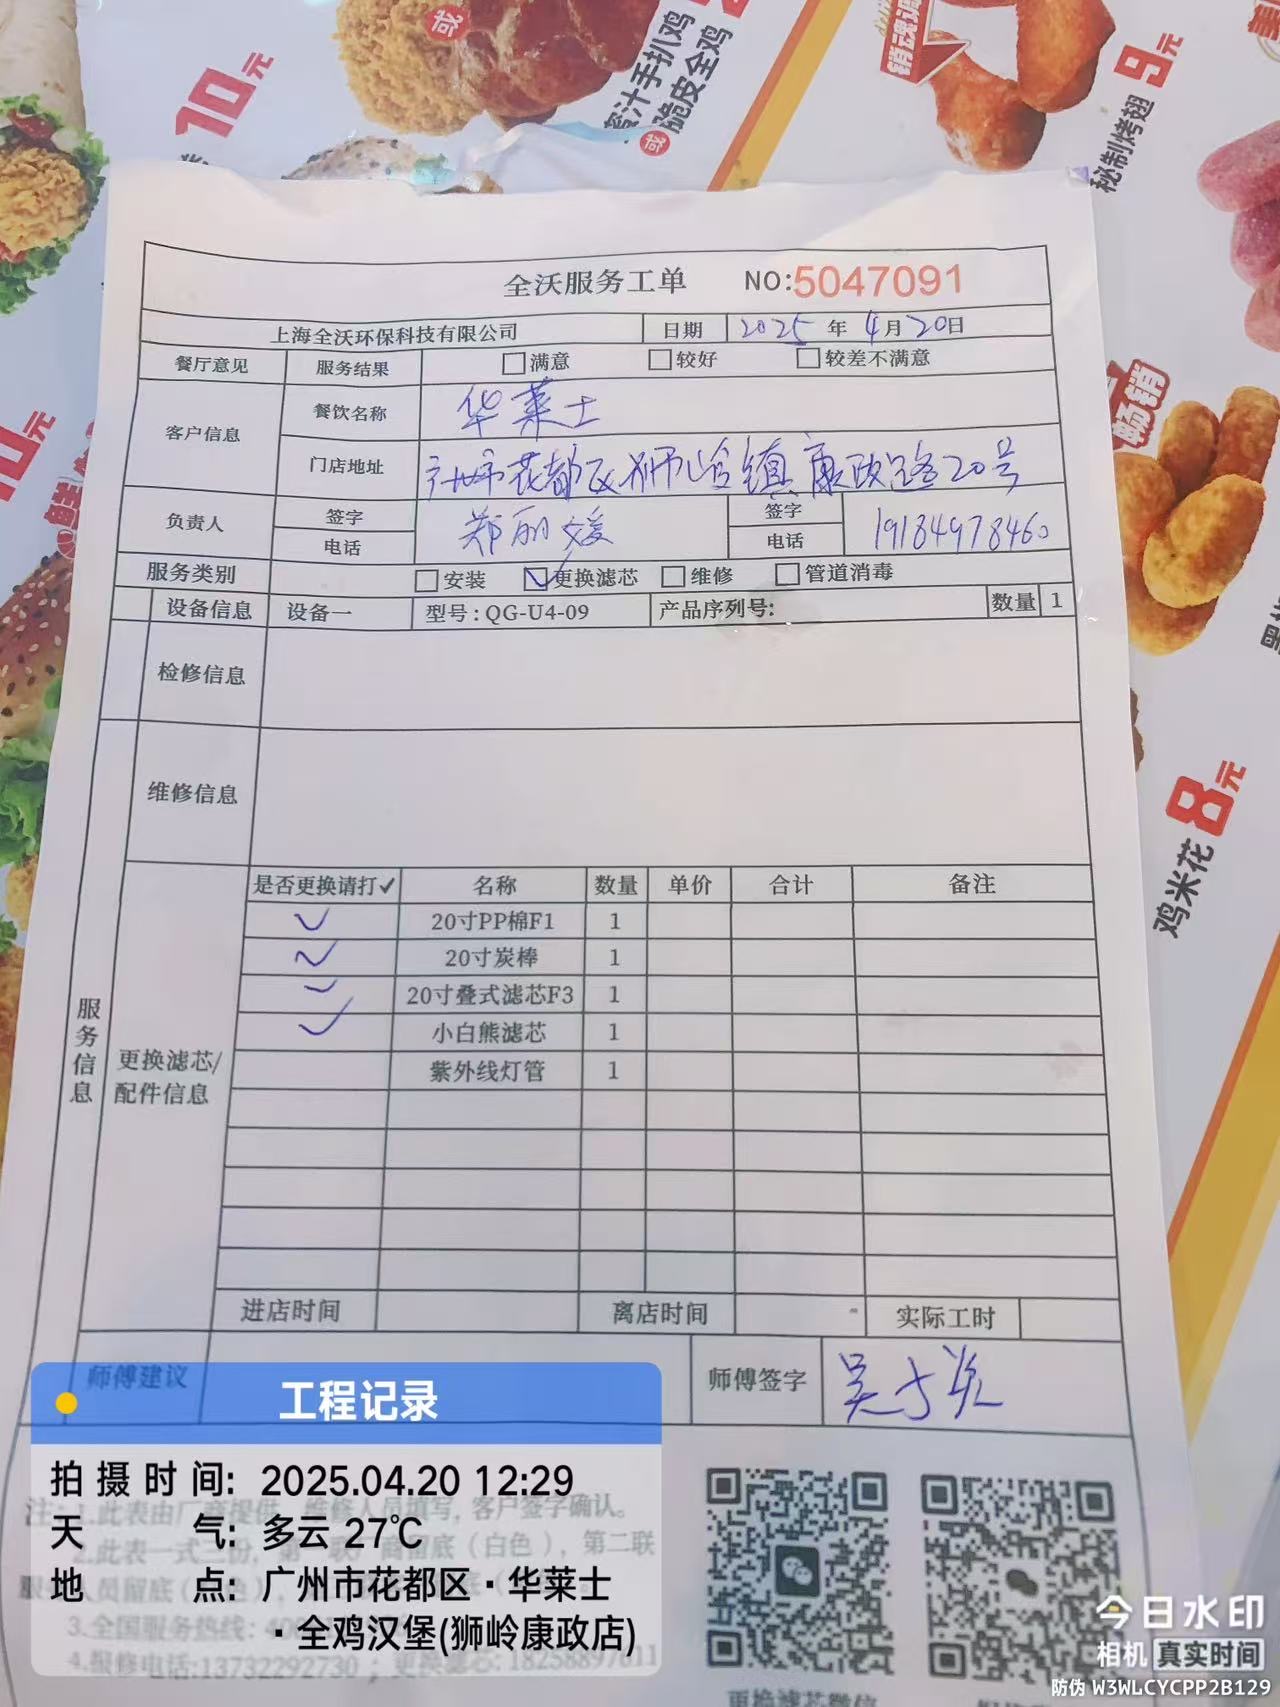 10元
或
蜜汁手扒鸡
或 脆皮全鸡
销魂
秘制烤翅 9元
10元
畅销
鸡米花 8元
全沃服务工单 NO:5047091
上海全沃环保科技有限公司 日期 2025 年 4 月 20 日
餐厅意见 服务结果 满意 较好 较差不满意
客户信息 餐饮名称 华莱士
门店地址 广州市花都区狮岭镇康政路20号
负责人 签字 电话 郑丽媛 签字 电话 19184978460
服务类别 安装 ✓更换滤芯 维修 管道消毒
设备信息 设备一 型号:QG-U4-09 产品序列号: 数量 1
检修信息
维修信息
服务信息
更换滤芯/配件信息
是否更换请打✓ 名称 数量 单价 合计 备注
✓ 20寸PP棉F1 1
✓ 20寸炭棒 1
✓ 20寸叠式滤芯F3 1
✓ 小白熊滤芯 1
紫外线灯管 1
进店时间 离店时间 实际工时
师傅建议 师傅签字
注:1.此表由厂商提供,维修人员填写,客户签字确认。
3.全国服务热线:
4.报修电话:13732292730 ; 更换滤芯:
更换滤芯微信
工程记录
拍摄时间: 2025.04.20 12:29
天气: 多云 27℃
地点: 广州市花都区·华莱士
·全鸡汉堡(狮岭康政店)
今日水印
相机 真实时间
防伪 W3WLCYCPP2B129